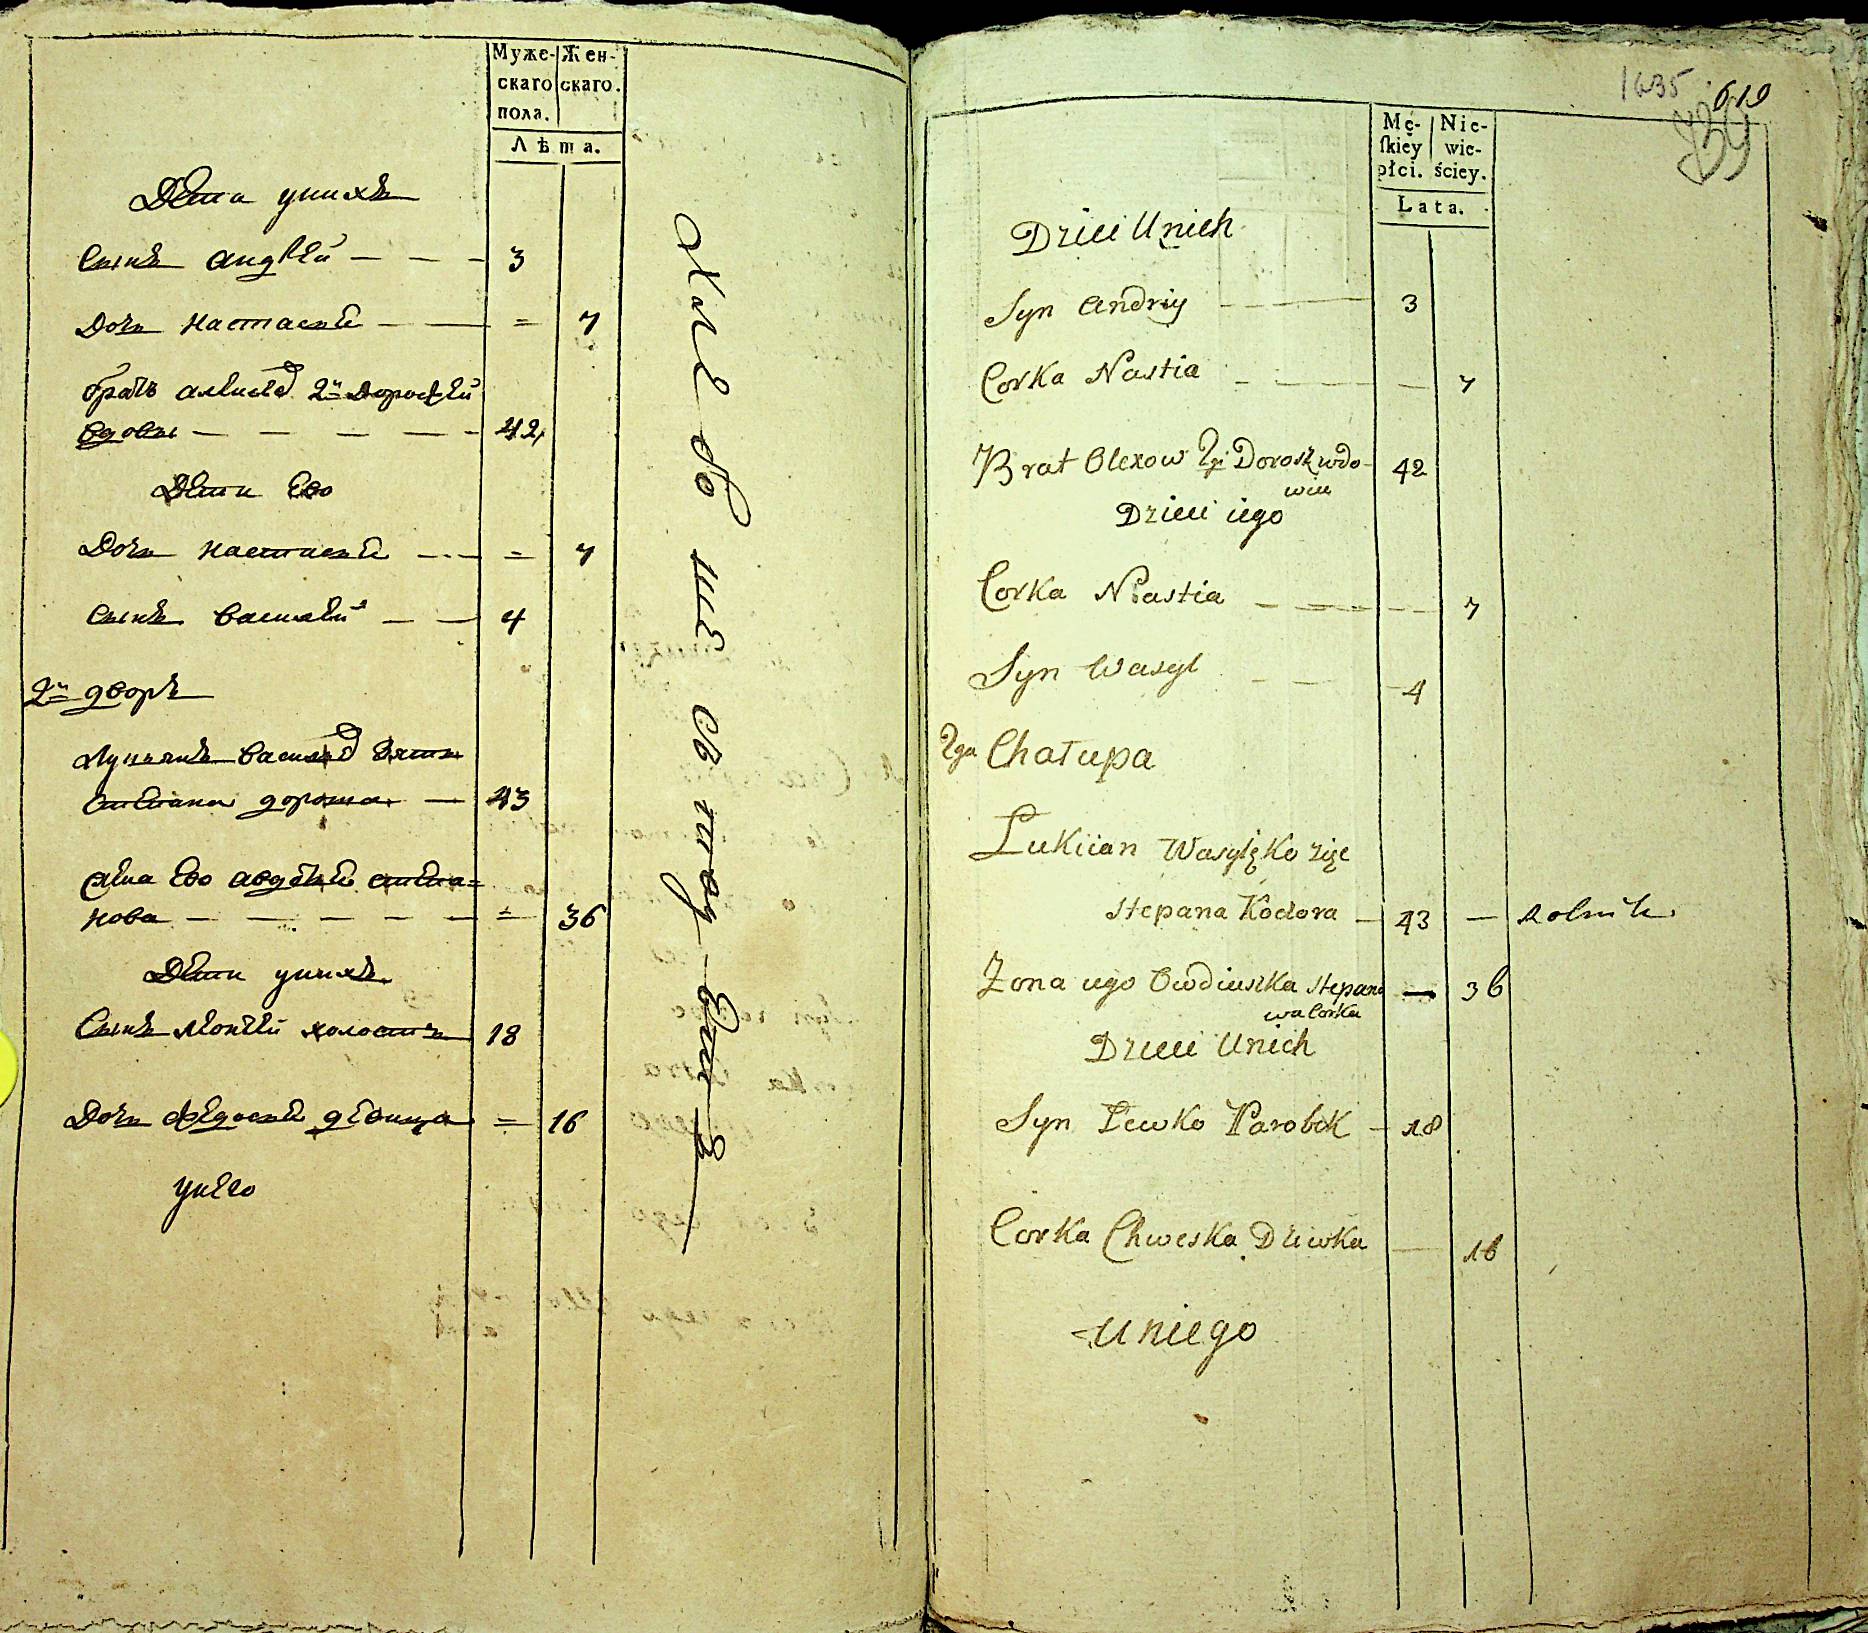 Муже- Жен-
скаго скаго.
пола.
Лѣта.
Дѣти унихъ
Сынъ андрѣй 3
Дочь настасья = 7
братъ алексѣя 2й дорофѣй
вдовъ 42
Дѣти Его
Дочь настасья = 7
Сынъ василѣй 4
2й дворъ
Лукьянъ василѣв зять
степана 43
жена Его авдотья степа=
нова = 36
Дѣти унихъ
Сынъ холостъ 18
Дочь федосья дѣвица = 16
унего
1635 619
739
Mę- Nie-
ſkiey wie-
płci. ściey.
Lata.
Dzieci Unich
Syn Andriy 3
Corka Nastia 7
Brat Olexow 2gi Dorosz wdo-
wiec 42
Dzieci iego
Corka Nastia 7
Syn Wasyl 4
2ga Chałupa
Lukiian zięc
Stepana Kodora 43 — Rolnik
Zona iego Owdiuszka Stepano
wa Corka — 36
Dzieci Unich
Syn Lewko Parobek 18
Corka Chweska Dziwka 16
Uniego